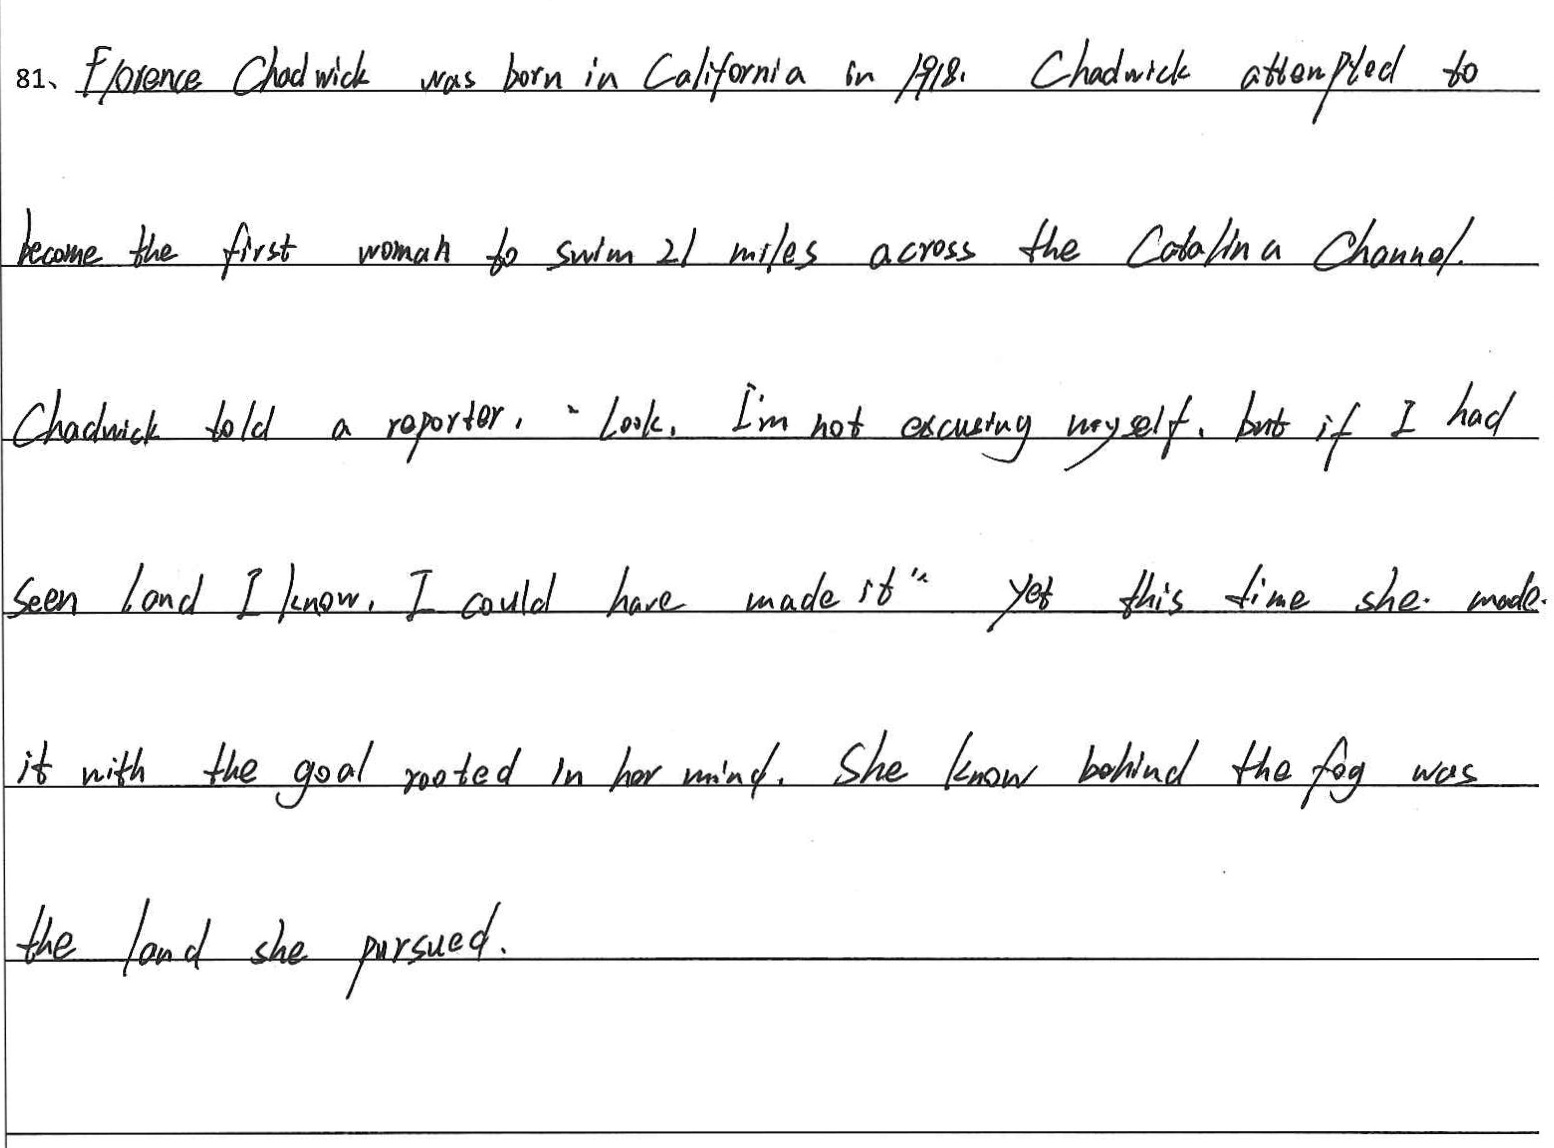 81、Florence Chadwick was born in California in 1918. Chadwick attempted to
become the first woman to swim 21 miles across the Catalina Channel.
Chadwick told a reporter, “Look, I'm not excusing myself, but if I had
seen land I know, I could have made it" yet this time she. made.
it with the goal rooted in her mind. She know behind the fog was
the land she pursued.